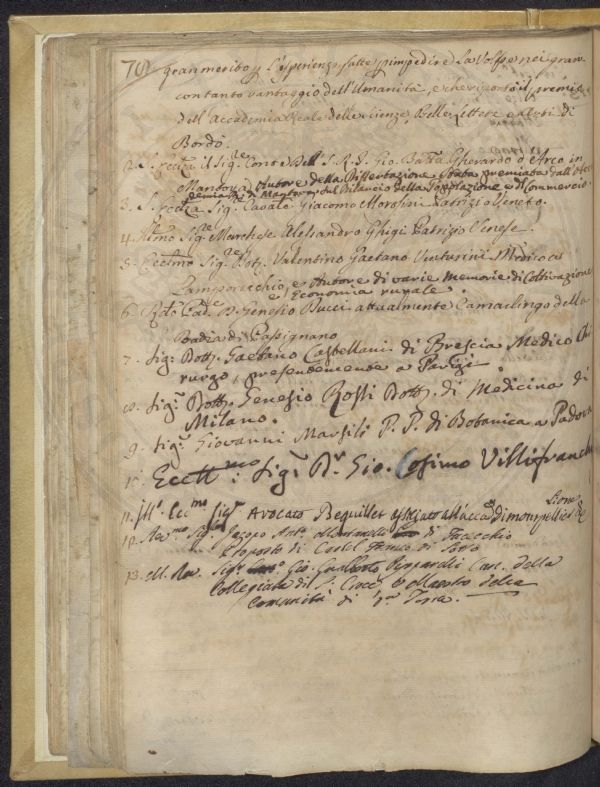 702 gran merito p l'esperienze fatte p impedire La Volpe nei grani
con tanto vantaggio dell'Umanità, e che riportò il premio
dell'Accademia Reale delle scienze Belle Lettere ed Arti di
Bordò.
2. S. Ecc.za il Sig.re Conte Del S. R. I. Gio. Batta Gherardo d'Arco in
Mantova, Autore della Dissertazione stata premiata dall'Acca
demia di Mantova sul Bilancio della Popolazione e Commercio.
3. S. Ecc.za Sig. Cavale. Giacomo Morosini Patrizio Veneto.
4. Ill.mo Sig.re Marchese Alessandro Ghigi Patrizio Senese.
5. Eccell.mo Sig.re Dot. Valentino Gaetano Venturini Medico a
Lamporecchio, e Autore di varie memorie di Coltivazione
e Economia rurale.
6. R.do Pad.e D. Genesio Bucci attualmente Camarlingo della
Badia di Passignano
7. Sig. Dott. Gaetano Castellani di Brescia Medico Chi
rurgo, presentemente a Parigi.
8. Sig. Dott. Genesio Rossi Dott. di Medicina di
Milano.
9. Sig. Giovanni Marsili P. P. di Botanica a Padova
10. Eccell.mo Sig. D.r Gio. Cosimo Villifranchi
11. Ill. Ecc.mo Sig. Avocato Beguillet associato all'acca di Monpellier Lione
12. Rev.mo Sig. Jacopo Ant. di Fucecchio
Proposto di Castel Franco di Sotto
13. M. Rev. Sig. Gio. Gualberto Can. della
Collegiata di S. Croce e Maestro della
Comunità di d.a Terra.